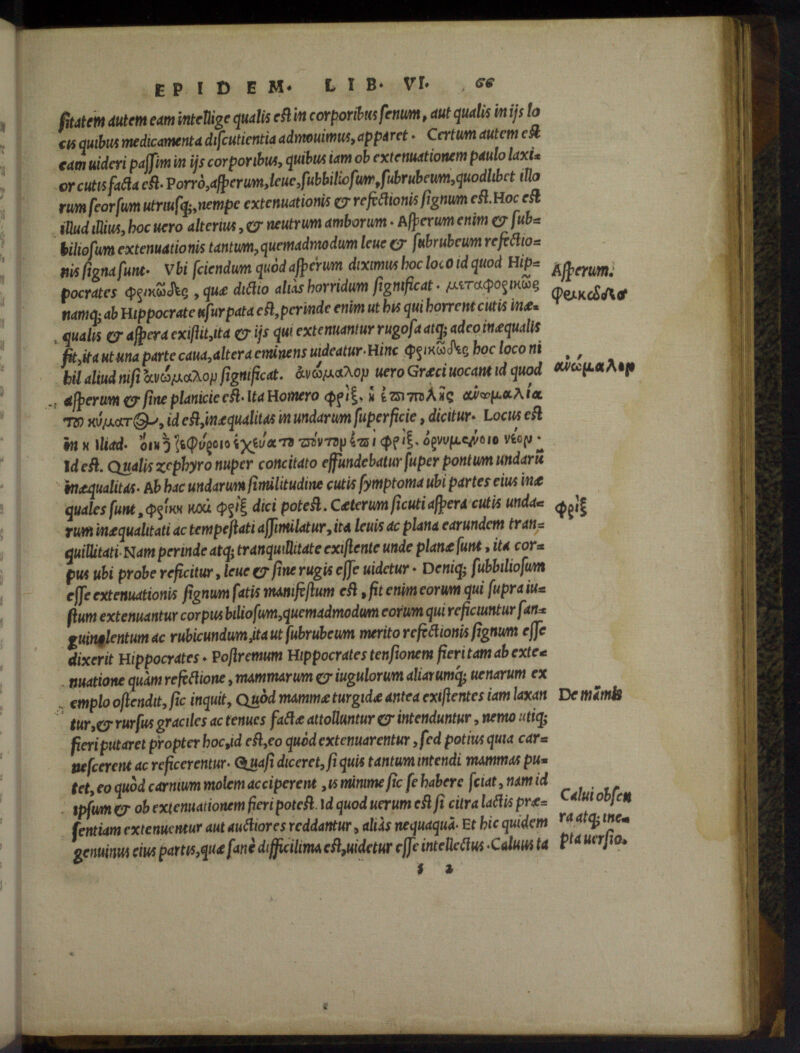 EPIDEM. LIB. VI. 66
ſitatem autem eam intellige qualis eſt in corporibus ſenum, aut qualis in ijs lo
cis quibus medicamenta diſcutientia admouimus, apparet. Certum autem eſt
eam uideri paſſim in ijs corporibus, quibus iam ob extenuationem paulo laxi=
or cutis facta eſt. Porrò, aſperum, leue, ſubbilioſum, ſubrubeum, quodlibet illo
rum ſeorſum utriuſq;, nempe extenuationis & refectionis ſignum eſt. Hoc eſt
illud illius, hoc uero alterius, & neutrum amborum. Aſperum enim & ſub=
bilioſum extenuationis tantum, quemadmodum leue & ſubrubeum refectio=
nis ſigna ſunt. Vbi ſciendum quòd aſperum diximus hoc loco id quod Hip=
Aſperum.
pocrates φρικῶδες, quæ dictio aliàs horridum ſignificat. μεταφορικῶς
φρικῶδες
namq; ab Hippocrate uſurpata eſt, perinde enim ut his qui horrent cutis inæ=
qualis & aſpera exiſtit, ita & ijs qui extenuantur rugoſa atq; adeo inæqualis
fit, ita ut una parte caua, altera eminens uideatur. Hinc φρικῶδες hoc loco ni
hil aliud niſi ἀνώμαλον ſignificat. ἀνώμαλον uero Græci uocant id quod
ἀνώμαλον
aſperum & ſine planicie eſt. Ita Homero φρὶξ, ἡ ἐπιπολῆς ἀνωμαλία
τοῦ κύματος, id eſt, inæqualitas in undarum ſuperficie, dicitur. Locus eſt
in η Iliad. οἵη δὲ ζεφύροιο ἐχεύατο πόντον ἔπι φρὶξ. ὀρνυμένοιο νέον.
Id eſt. Qualis zephyro nuper concitato effundebatur ſuper pontum undarũ
inæqualitas. Ab hac undarum ſimilitudine cutis ſymptoma ubi partes eius inæ
quales ſunt, φρίκη καὶ φρὶξ dici poteſt. Cæterum ſicuti aſpera cutis unda=
φρὶξ
rum inæqualitati ac tempeſtati aſſimilatur, ita leuis ac plana earundem tran=
quillitati. Nam perinde atq; tranquillitate exiſtente unde planæ ſunt, ita cor=
pus ubi probe reficitur, leue & ſine rugis eſſe uidetur. Deniq; ſubbilioſum
eſſe extenuationis ſignum ſatis manifeſtum eſt, fit enim eorum qui ſupra iu=
ſtum extenuantur corpus bilioſum, quemadmodum eorum qui reficiuntur ſan=
guinolentum ac rubicundum, ita ut ſubrubeum merito refectionis ſignum eſſe
dixerit Hippocrates. Poſtremum Hippocrates tenſionem fieri tam ab exte=
nuatione quàm refectione, mammarum & iugulorum aliarumq; uenarum ex
emplo oſtendit, ſic inquit, Quòd mammæ turgidæ antea exiſtentes iam laxan
De mãmis
tur, & rurſus graciles ac tenues factæ attolluntur & intenduntur, nemo utiq;
fieri putaret propter hoc, id eſt, eo quòd extenuarentur, ſed potius quia car=
neſcerent ac reficerentur. Quaſi diceret, ſi quis tantum intendi mammas pu=
tet, eo quòd carnium molem acciperent, is minime ſic ſe habere ſciat, nam id
ipſum & ob extenuationem fieri poteſt. Id quod uerum eſt ſi citra lactis præ=
Calui obſcu
ſentiam extenuentur aut auctiores reddantur, aliàs nequaquã. Et hic quidem
ra atq; ine=
genuinus eius partis, quæ ſanè difficilima eſt, uidetur eſſe intellectus. Caluus ta
pta uerſio.
i 2